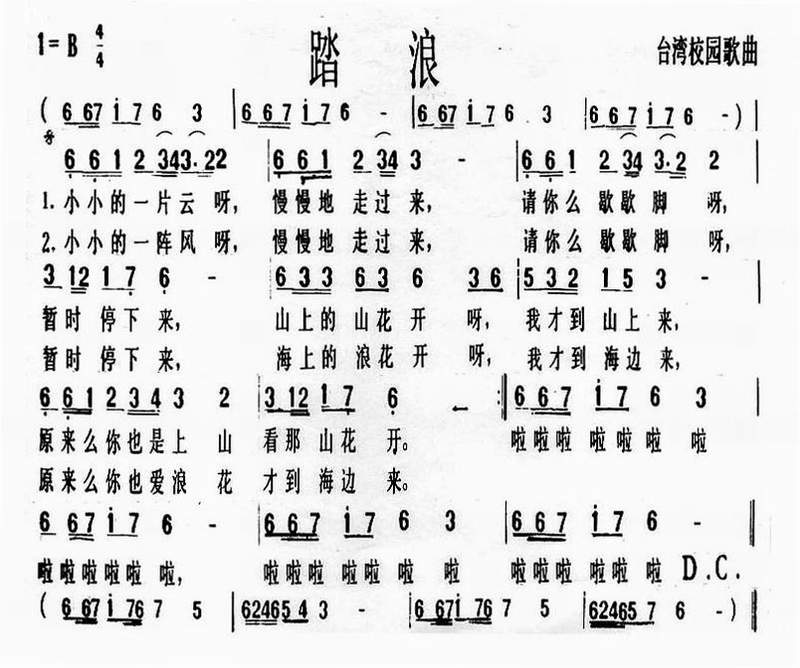 1=B 4/4 踏浪 台湾校园歌曲
( 6 67 i 76 3 | 6 67 i 76 - | 6 67 i 7 6 3 | 6 6 7 i 7 6 - )
6 6 1 2 34 3·22 | 6 6 1 2 34 3 - | 6 6 1 2 34 3·2 2 |
1.小小的一片云呀, 慢慢地 走过来, 请你么 歇歇脚 呀,
2.小小的一阵风呀, 慢慢地 走过来, 请你么 歇歇脚 呀,
3 12 1 7 6 - | 6 33 63 6 36 | 5 32 15 3 - |
暂时 停下 来, 山上的 山花开 呀, 我才到 山上 来,
暂时 停下 来, 海上的 浪花开 呀, 我才到 海边 来,
6 61 2 34 3 2 | 3 12 1 7 6 - :| 6 6 7 i 7 6 3 |
原来么你也是上 山 看那 山花 开。 啦啦啦 啦啦啦 啦
原来么你也爱浪 花 才到 海边 来。
6 67 i7 6 - | 6 6 7 i 7 6 3 | 6 6 7 i 7 6 - |
啦啦啦啦啦 啦, 啦啦啦 啦啦啦 啦 啦啦啦 啦啦啦 D.C.
( 6 67 i 76 7 5 | 62465 4 3 - | 6 67 i 76 7 5 | 62465 7 6 - )